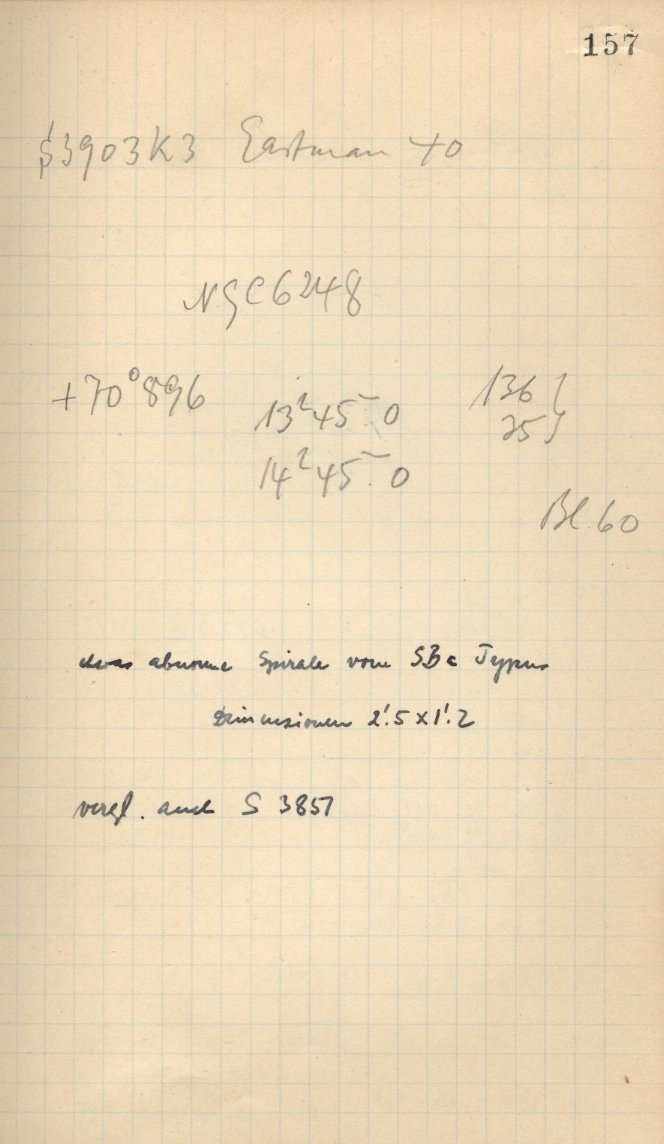 157
S3903K3 Eastman 40
NGC6248
+70°896 13ʰ45ᵐ.0 136 }
14ʰ45ᵐ.0 25 }
Bl. 60
etwas abnorme Spirale vom SBc Typus
Dimensionen 2'.5 x 1'.2
vergl. auch S 3857